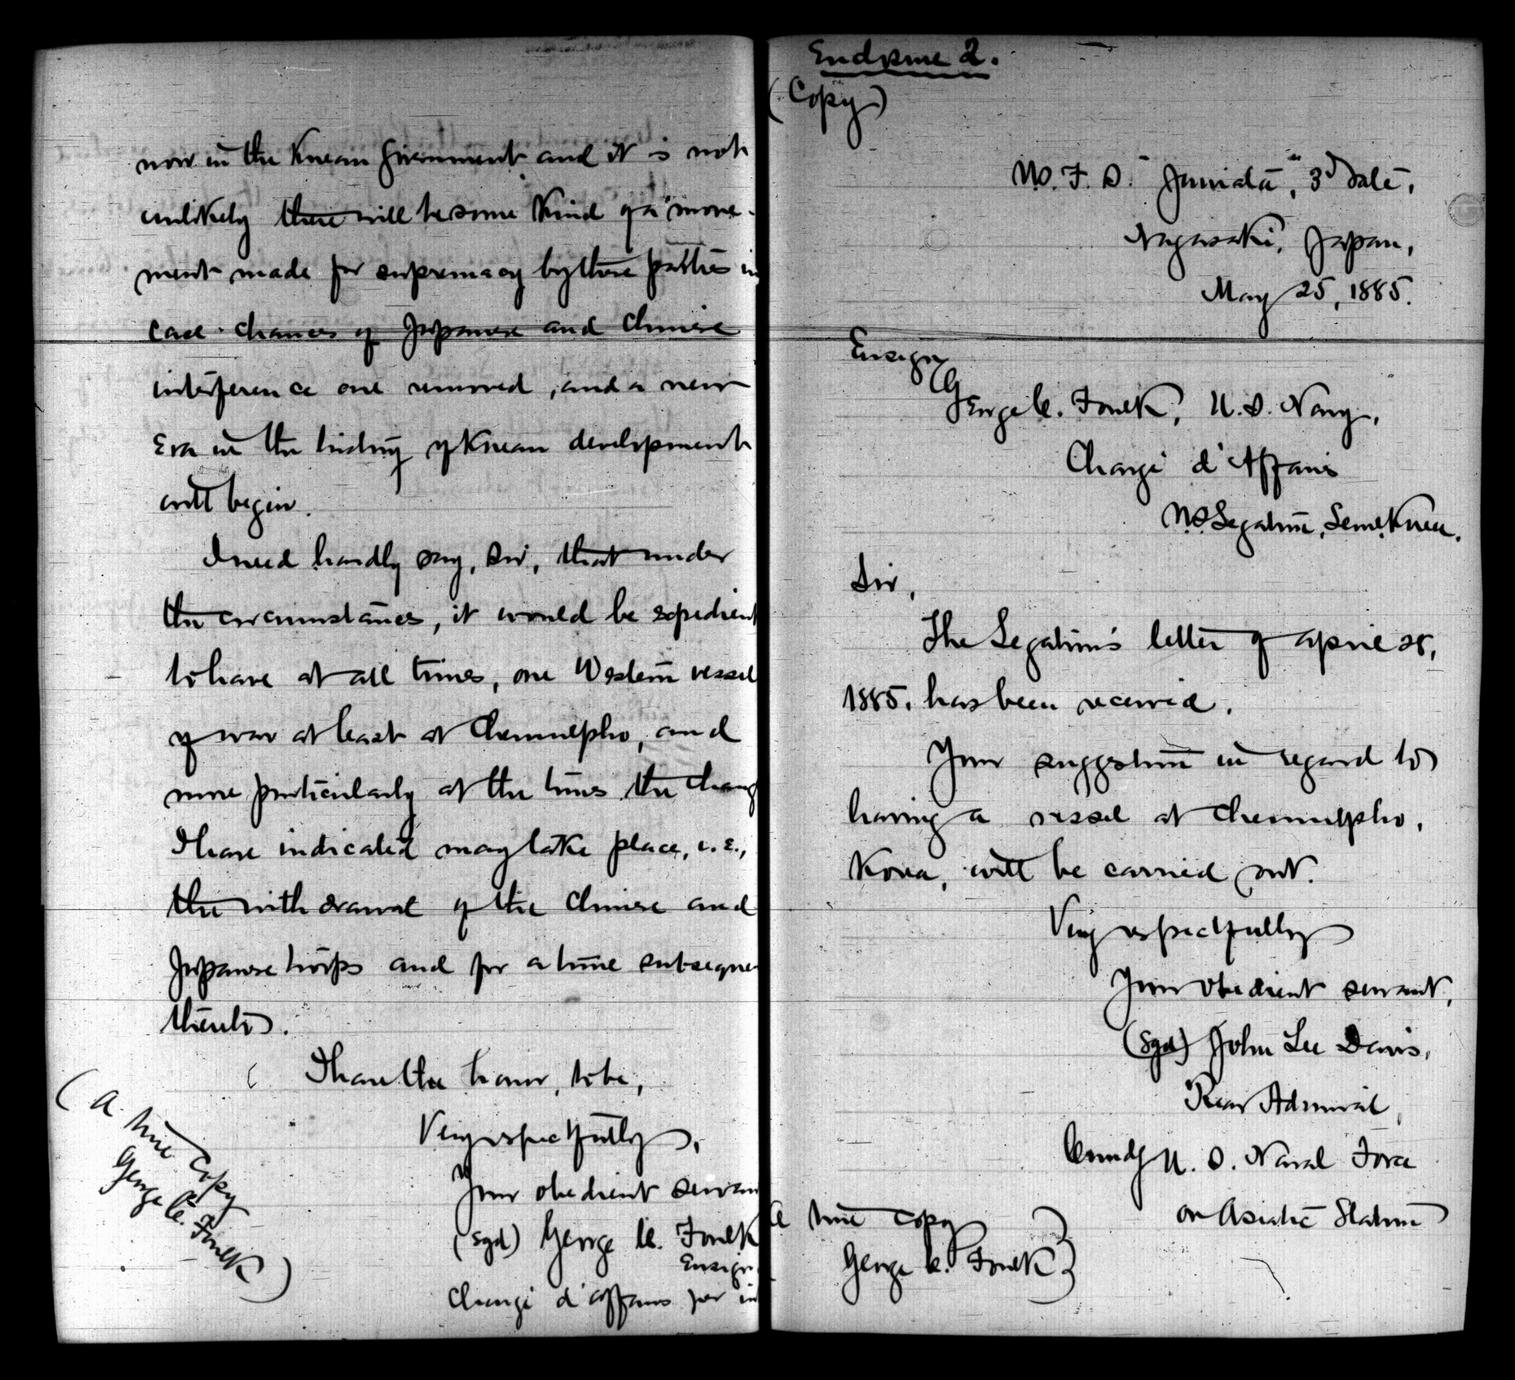 now in the Korean Government and it is not
unlikely there will be some kind of a move-
ment made for supremacy by these parties in
case chances of Japanese and Chinese
interference are removed, and a new
Era in the history of Korean development
will begin.
I need hardly say, Sir, that under
the circumstances, it would be expedient
to have at all times, one Western vessel
of war at least at Chemulpho, and
more particularly at the times the chang
I have indicated may take place, i.e.,
the withdrawal of the Chinese and
Japanese troops and for a time subseque
thereto.
I have the honor, to be,
Very respectfully,
Your obedient servan
(sgd) George C. Foulk
Ensign
Chargé d'affaires per in
(A true copy
George C. Foulk)
Enclosure 2.
(Copy)
U.S.F.S. "Juniata", 3d rate,
Nagasaki, Japan,
May 25, 1885.
Ensign
George C. Foulk, U.S. Navy,
Chargé d'Affaires
U.S. Legation, Seoul, Korea.
Sir,
The Legation's letter of April 28,
1885. has been received.
Your suggestion in regard to
having a vessel at Chemulpho,
Korea, will be carried out.
Very respectfully
Your obedient servant,
(sgd) John Lee Davis,
Rear Admiral,
Comdg U.S. Naval Force
on Asiatic Station
A true copy
George C. Foulk